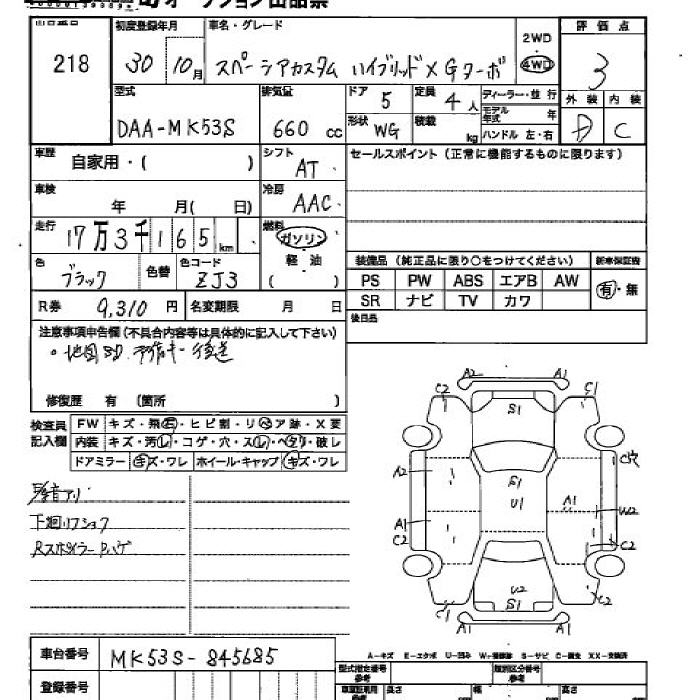 オークション出品票
出品番号
218
初度登録年月
30年 10月
車名・グレード
スペーシアカスタム ハイブリッドXGターボ
2WD
4WD
評価点
3
外装 内装
D C
型式
DAA-MK53S
排気量
660 cc
ドア
5
定員
4人
形状
WG
積載
kg
ディーラー・並行
モデル年式 年
ハンドル 左・右
車歴
自家用・( )
シフト
AT
セールスポイント(正常に機能するものに限ります)
車検
年 月( 日)
冷房
AAC
走行
17万3千165km
燃料
ガソリン
軽油
( )
色
ブラック
色替
色コード
ZJ3
装備品(純正品に限り○をつけてください)
新車保証書
PS PW ABS エアB AW
SR ナビ TV カワ
有・無
R券 9,310円
名変期限 月 日
後日品
注意事項申告欄(不具合内容等は具体的に記入して下さい)
。地図SD、予備キー後送
修復歴 有 (箇所 )
検査員記入欄
FW キズ・飛石・ヒビ割・リペア跡・X要
内装 キズ・汚レ・コゲ・穴・スレ・ヘタリ・破レ
ドアミラー キズ・ワレ ホイール・キャップ キズ・ワレ
異音アリ
下廻リフショク
RスポイラーPハゲ
A2 A1
C2 S1 C1
A2 S1 C穴
U1 A1 U2
A1
C2 C2
U2
C2 S1 C2
A1 A1
A-キズ E-エクボ U-凹み W-補修跡 S-サビ C-腐食 XX-交換済
車台番号
MK53S-845685
登録番号
型式指定番号
参考
類別区分番号
参考
長さ
幅
高さ